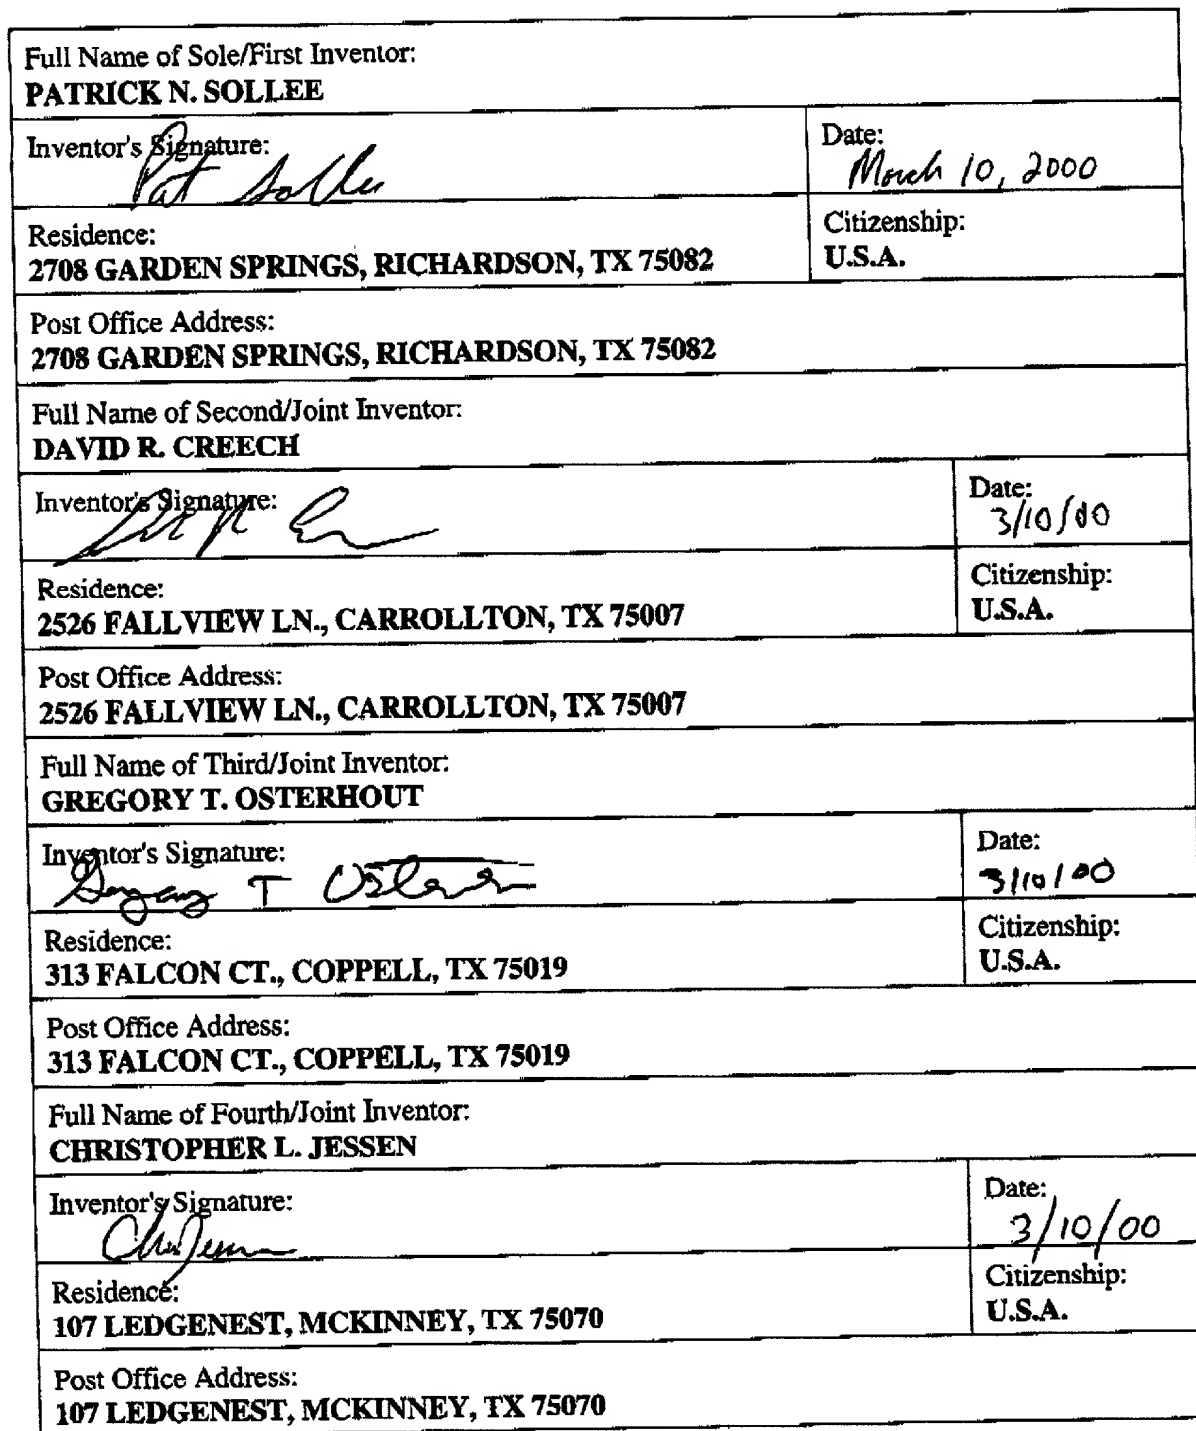 Full Name of Sole/First Inventor:
PATRICK N. SOLLEE
Inventor's Signature:
Pat Sollee
Date:
March 10, 2000
Residence:
2708 GARDEN SPRINGS, RICHARDSON, TX 75082
Citizenship:
U.S.A.
Post Office Address:
2708 GARDEN SPRINGS, RICHARDSON, TX 75082
Full Name of Second/Joint Inventor:
DAVID R. CREECH
Inventor's Signature:
Date:
3/10/00
Residence:
2526 FALLVIEW LN., CARROLLTON, TX 75007
Citizenship:
U.S.A.
Post Office Address:
2526 FALLVIEW LN., CARROLLTON, TX 75007
Full Name of Third/Joint Inventor:
GREGORY T. OSTERHOUT
Inventor's Signature:
Gregory T
Date:
3/10/00
Residence:
313 FALCON CT., COPPELL, TX 75019
Citizenship:
U.S.A.
Post Office Address:
313 FALCON CT., COPPELL, TX 75019
Full Name of Fourth/Joint Inventor:
CHRISTOPHER L. JESSEN
Inventor's Signature:
Chris Jessen
Date:
3/10/00
Residence:
107 LEDGENEST, MCKINNEY, TX 75070
Citizenship:
U.S.A.
Post Office Address:
107 LEDGENEST, MCKINNEY, TX 75070